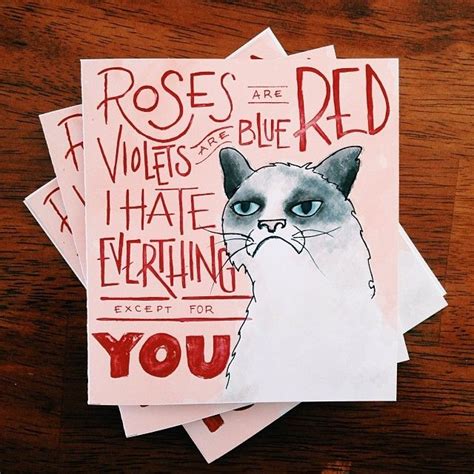 ROSES ARE RED
VIOLETS ARE BLUE
I HATE
EVERTHING
EXCEPT FOR
YOU